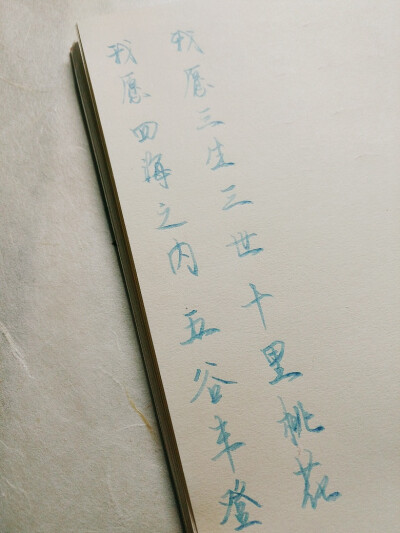 我愿三生三世十里桃花
我愿四海之内五谷丰登